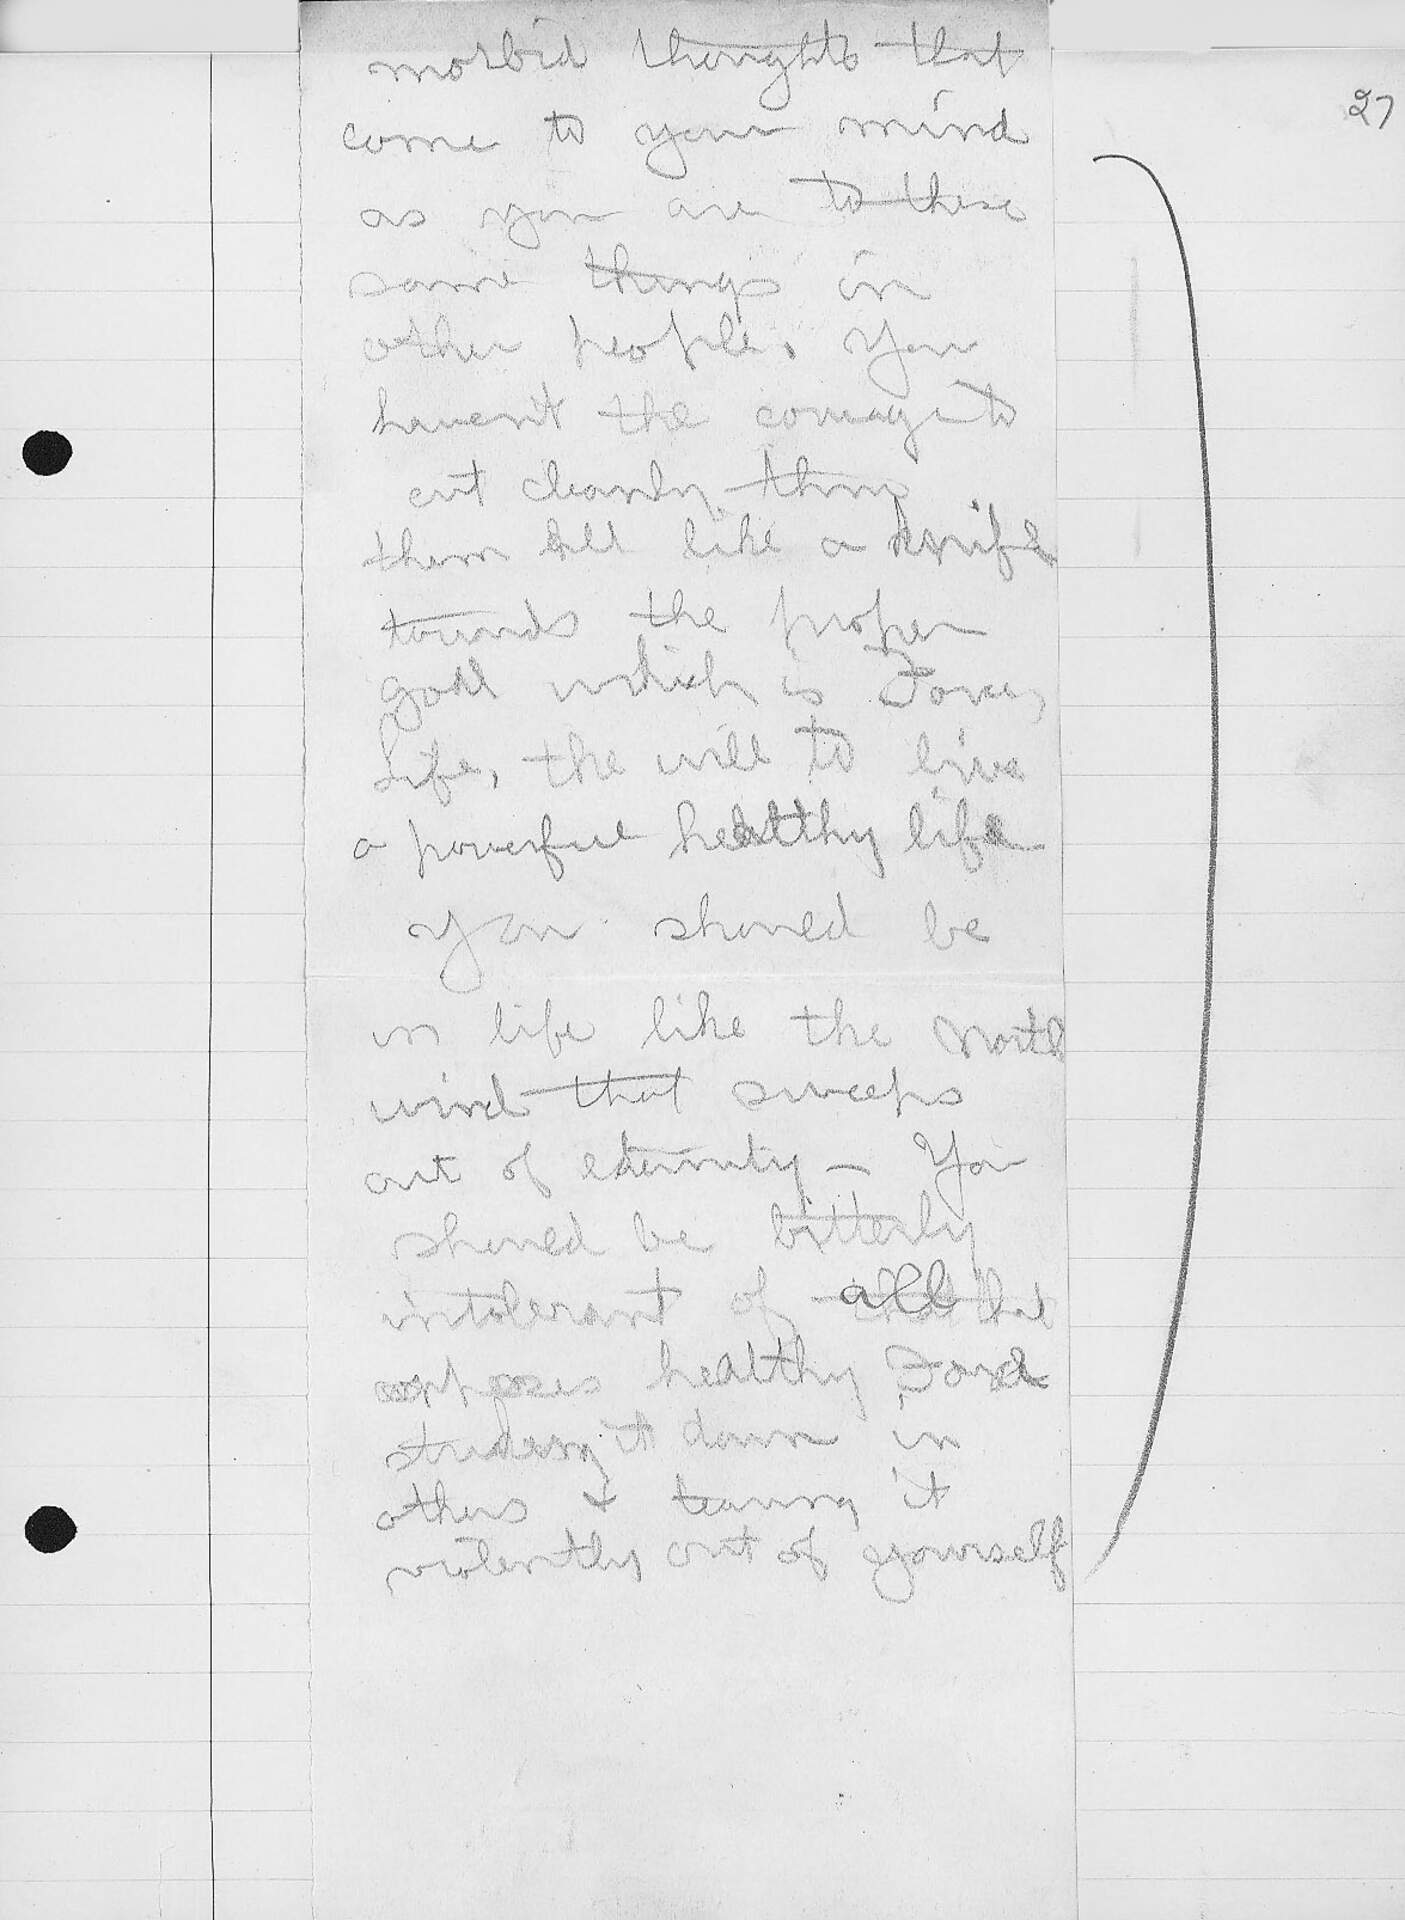 27
morbid thoughts that
come to your mind
as you are to these
same things in
other people. You
haven't the courage to
cut cleanly thru
them all like a knife
towards the proper
goal which is Force,
Life, the will to live
a powerful healthy life
You should be
in life like the North
wind that sweeps
out of eternity — You
should be bitterly
intolerant of all that
opposes healthy Force
it down in
others & tearing it
violently out of yourself